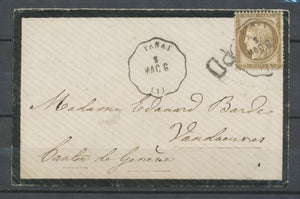 TANAY
9
MAC. G
(1)
9
MAC. G
PD
Madame Edouard Barde
Vandoeuvres
Canton de Genève